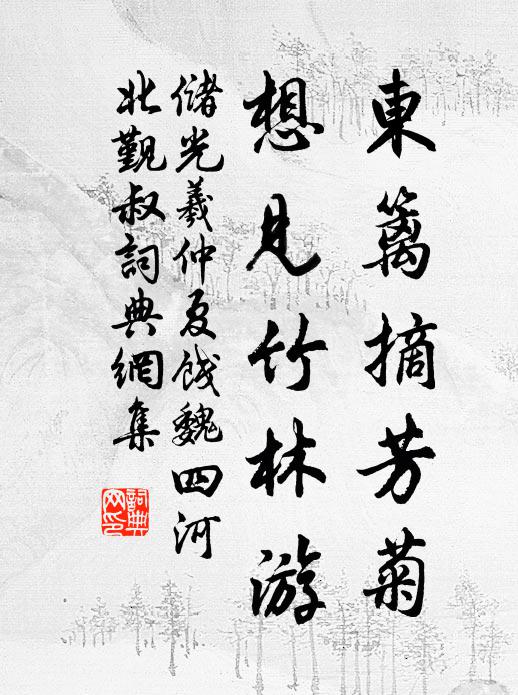 東籬摘芳菊
想見竹林游
儲光羲仲夏餞魏四河
北觐叔詞典網集
詞典
网印